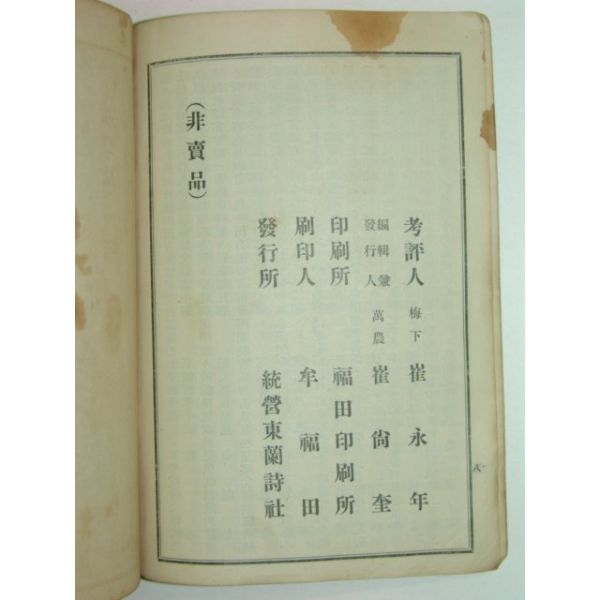 考評人 梅下 崔永年
編輯兼
發行人 萬農 崔尙奎
印刷所 福田印刷所
刷印人 牟福田
發行所 統營東蘭詩社
(非賣品)